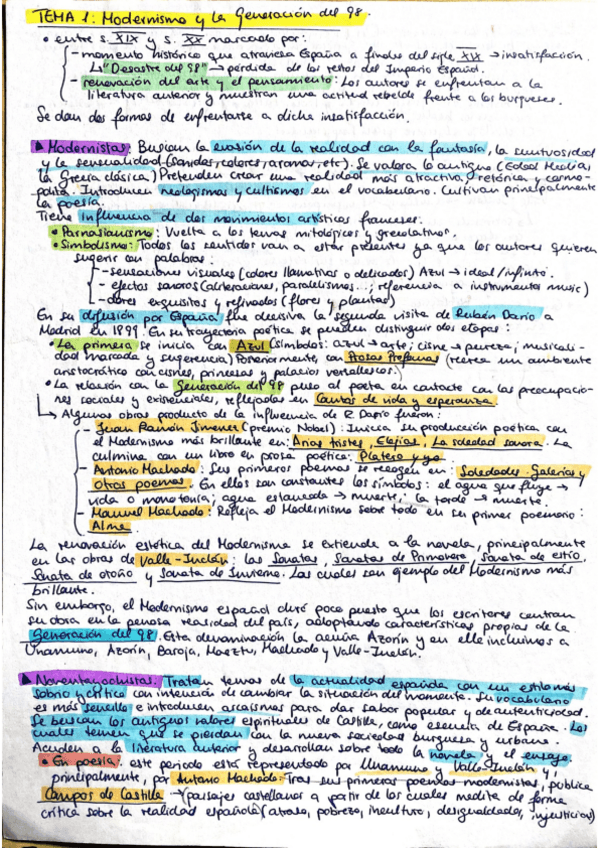 TEMA 1: Modernismo y la Generación del 98.
• entre s. XIX y s. XX marcado por:
- momento histórico que atraviesa España a finales del siglo XIX → insatisfacción.
↳ "Desastre del 98" → pérdida de los restos del Imperio Español.
- renovación del arte y el pensamiento: Los autores se enfrentan a la
literatura anterior y muestran una actitud rebelde frente a los burgueses.
Se dan dos formas de enfrentarse a dicha insatisfacción.
▲ Modernistas: Buscan la evasión de la realidad con la fantasía, la suntuosidad
y la sensualidad (sonidos, colores, aroma, etc). Se valora lo antiguo (Edad Media,
la Grecia clásica) Pretenden crear una realidad más atractiva, retórica y cosmo-
polita. Introducen neologismos y cultismos en el vocabulario. Cultivan principalmente
la poesía.
Tiene influencia de dos movimientos artísticos franceses:
• Parnasianismo: Vuelta a los temas mitológicos y grecolatinos.
• Simbolismo: Todos los sentidos van a estar presentes ya que los autores quieren
sugerir con palabras:
- sensaciones visuales (colores llamativos o delicados) Azul → ideal/infinito.
- efectos sonoros (aliteraciones, paralelismos...; referencia a instrumentos music)
- olores exquisitos y refinados (flores y plantas)
En su difusión por España fue decisiva la segunda visita de Rubén Darío a
Madrid en 1899. En su trayectoria poética se pueden distinguir dos etapas:
• La primera se inicia con Azul (símbolos: azul → arte; cisne → pureza; musicali-
dad marcada y sugerencia) Posteriormente, con Prosas Profanas (recrea un ambiente
aristocrático con cisnes, princesas y palacios versallescos.)
• La relación con la Generación del 98 puso al poeta en contacto con las preocupacio-
nes sociales y existenciales, reflejadas en Cantos de vida y esperanza.
↳ Algunas obras producto de la influencia de R. Darío fueron:
- Juan Ramón Jiménez (premio Nobel): Inicia su producción poética con
el Modernismo más brillante en: Arias tristes, Elejías, La soledad sonora. La
culmina con un libro en prosa poética: Platero y yo.
- Antonio Machado: Sus primeros poemas se recogen en: Soledades. Galerías y
otros poemas. En ellos son constantes los símbolos: el agua que fluye →
vida o monotonía; agua estancada → muerte; la tarde → muerte.
- Manuel Machado: Refleja el Modernismo sobre todo en su primer poemario:
Alma.
La renovación estética del Modernismo se extiende a la novela, principalmente
en las obras de Valle-Inclán: las Sonatas, Sonatas de Primavera, Sonata de estío,
Sonata de otoño y Sonata de Invierno. Las cuales son ejemplo del Modernismo más
brillante.
Sin embargo, el Modernismo español duró poco puesto que los escritores centran
su obra en la penosa realidad del país, adoptando características propias de la
Generación del 98. Esta denominación la acuña Azorín y en ella incluimos a
Unamuno, Azorín, Baroja, Maeztu, Machado y Valle-Inclán.
▲ Noventayochistas. Tratan temas de la actualidad española con un estilo más
sobrio y crítico con intención de cambiar la situación del momento. Su vocabulario
es más sencillo e introducen arcaísmos para dar sabor popular y de autenticidad.
Se buscan los antiguos valores espirituales de Castilla, como esencia de España. Los
cuales temen que se pierdan con la nueva sociedad burguesa y urbana.
Acuden a la literatura anterior y desarrollan sobre todo la novela y el ensayo.
• En poesía: este periodo está representado por Unamuno y Valle-Inclán y,
principalmente, por Antonio Machado: Tras sus primeros poemas modernistas, publica
Campos de Castilla → (paisajes castellanos a partir de los cuales medita de forma
crítica sobre la realidad española (atraso, pobreza, incultura, desigualdades, injusticias)